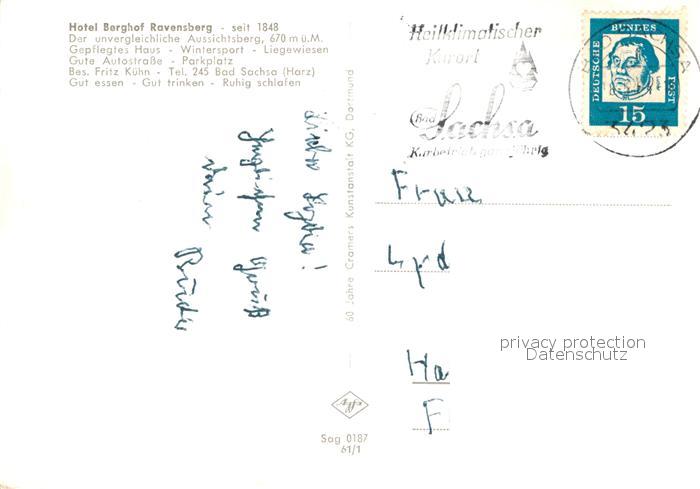 Hotel Berghof Ravensberg - seit 1848
Der unvergleichliche Aussichtsberg, 670 m ü.M.
Gepflegtes Haus - Wintersport - Liegewiesen
Gute Autostraße - Parkplatz
Bes. Fritz Kühn - Tel. 245 Bad Sachsa (Harz)
Gut essen - Gut trinken - Ruhig schlafen
Heilklimatischer
Kurort
Bad
Sachsa
Kurbetrieb ganzjährig
DEUTSCHE
BUNDES
POST
15
3423
60 Jahre Cramers Kunstanstalt KG, Dortmund
Liebe Lydia!
Herzlichen Gruß
Dein Bruder
Frau
Lyd
Ha
F
privacy protection
Datenschutz
Agfa
Sag 0187
61/1